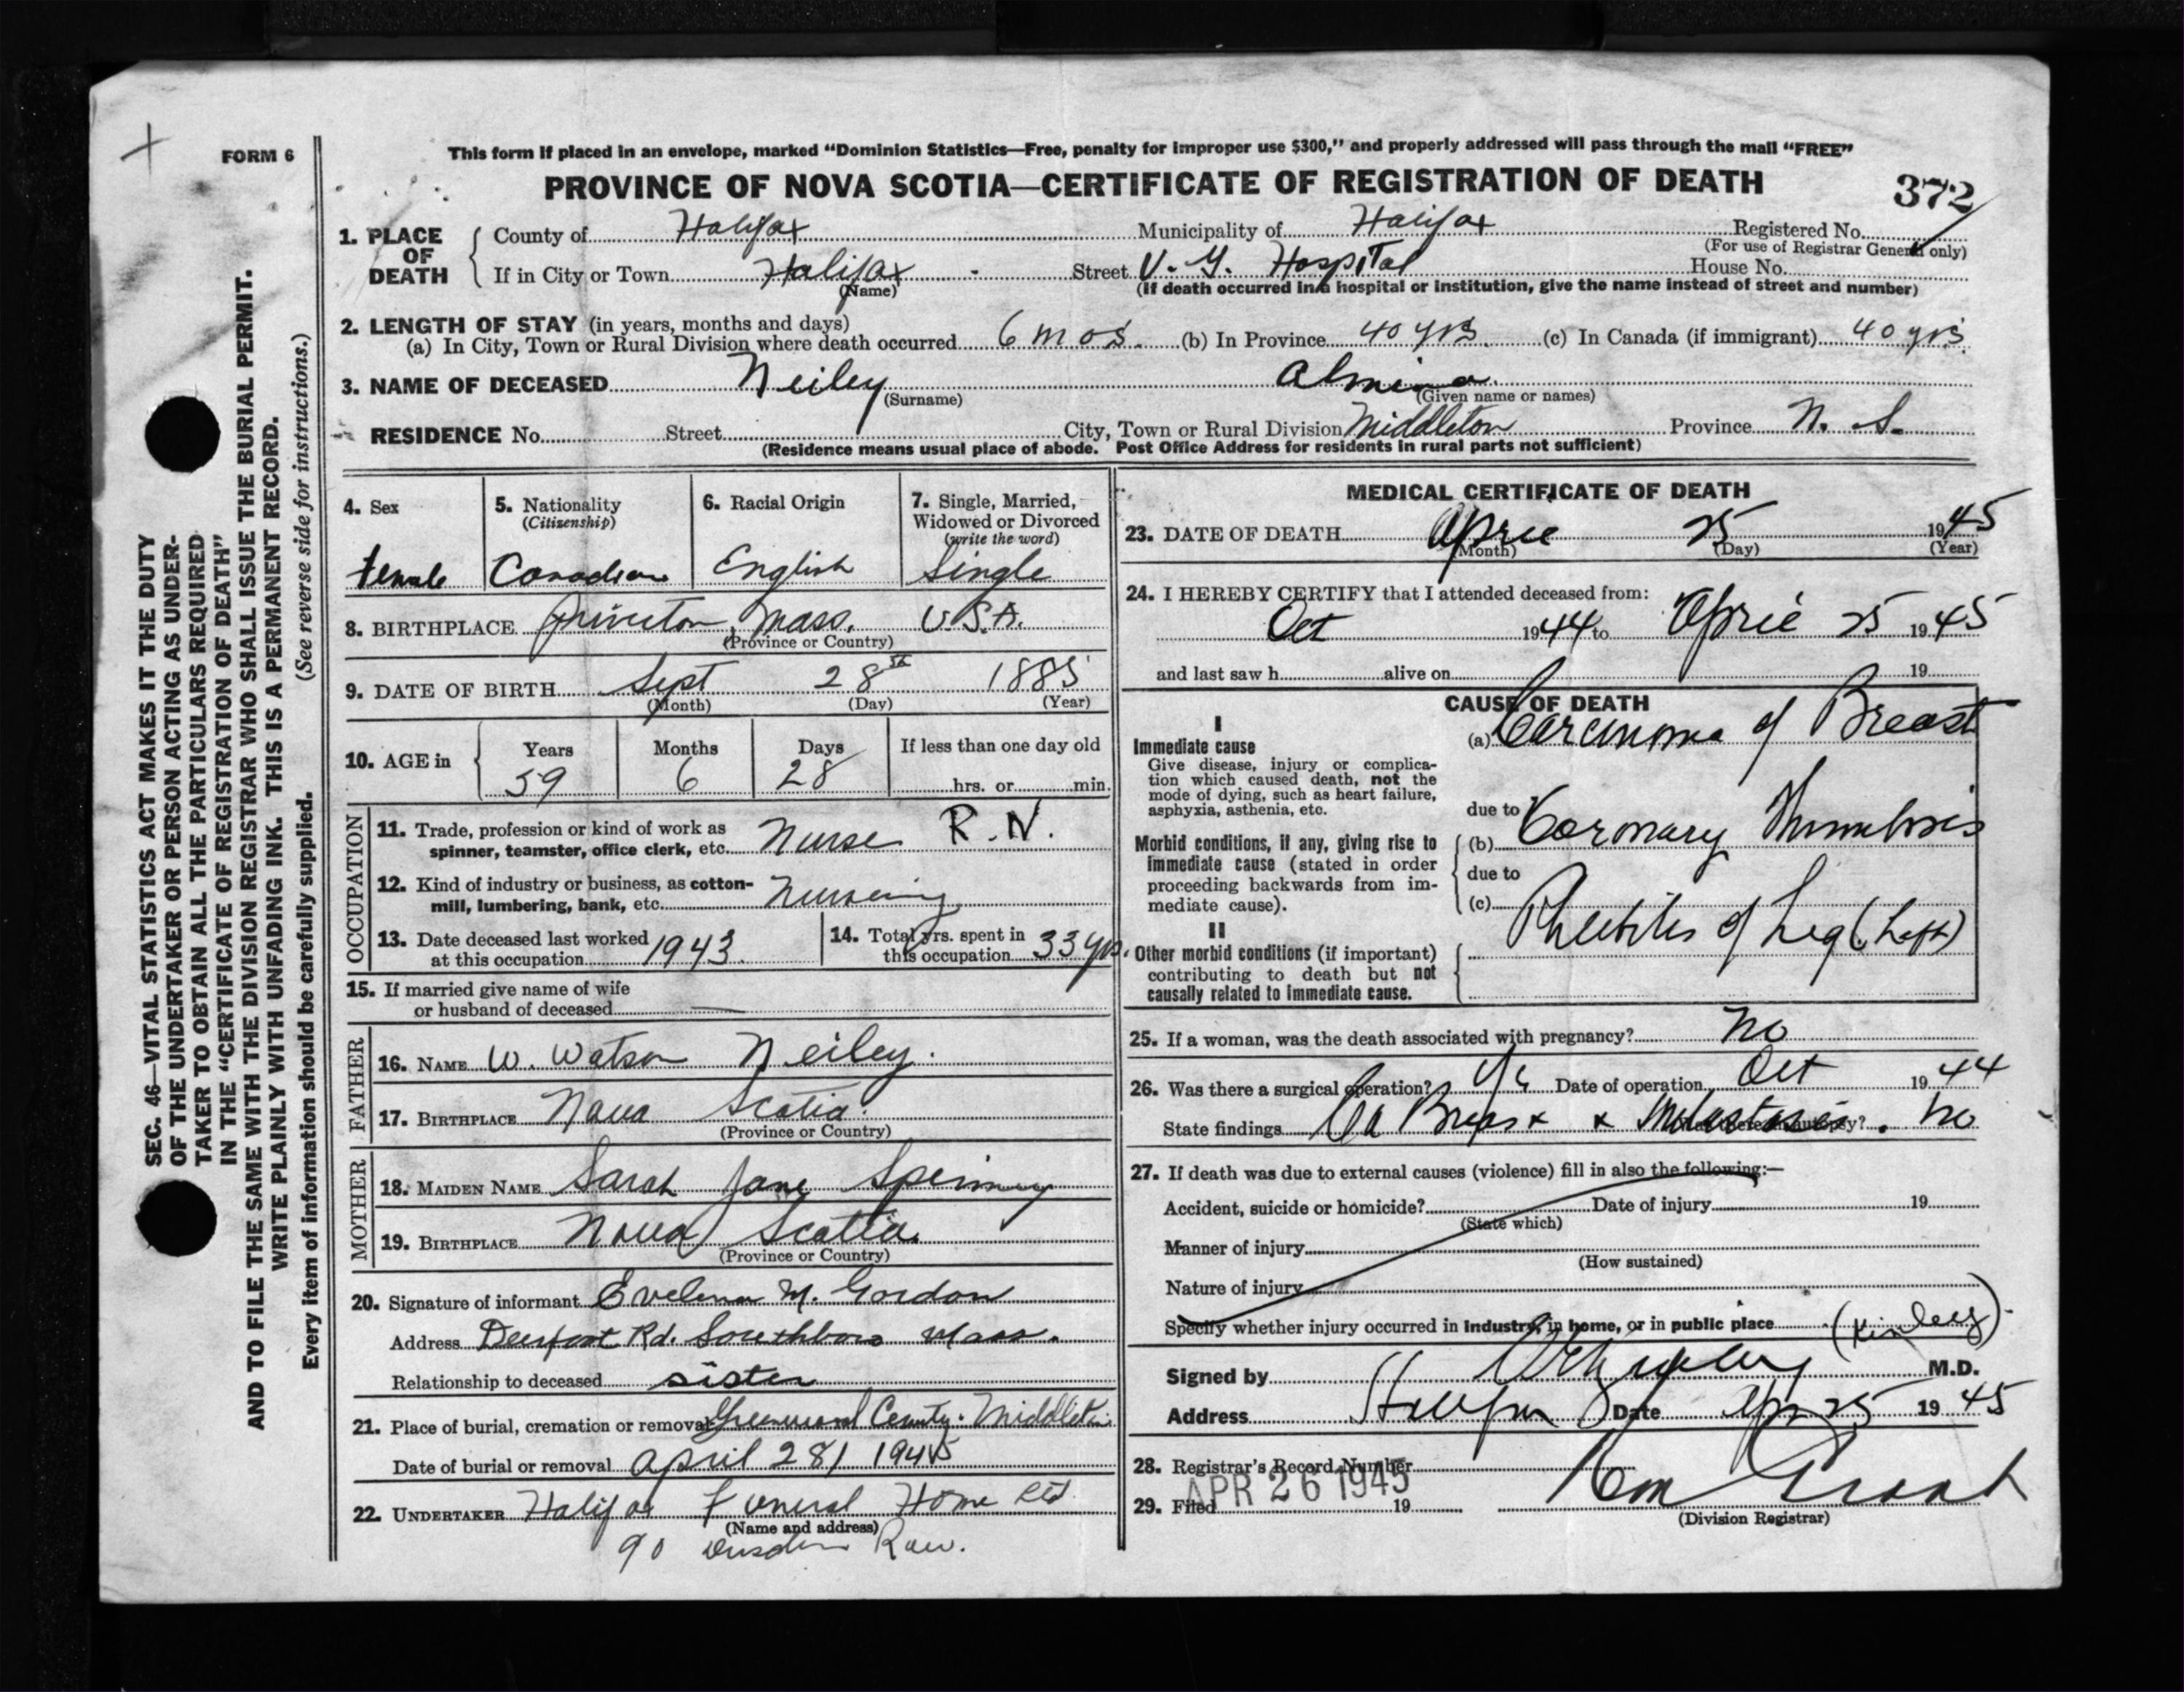 FORM 6
This form if placed in an envelope, marked “Dominion Statistics—Free, penalty for improper use $300,” and properly addressed will pass through the mail “FREE”
PROVINCE OF NOVA SCOTIA—CERTIFICATE OF REGISTRATION OF DEATH
372
1. PLACE OF DEATH
County of Halifax Municipality of Halifax Registered No.
(For use of Registrar General only)
If in City or Town Halifax Street V. G. Hospital House No.
(Name) (If death occurred in a hospital or institution, give the name instead of street and number)
2. LENGTH OF STAY (in years, months and days)
(a) In City, Town or Rural Division where death occurred 6 mos. (b) In Province 40 yrs. (c) In Canada (if immigrant) 40 yrs.
3. NAME OF DECEASED Neiley Almina
(Surname) (Given name or names)
RESIDENCE No. Street City, Town or Rural Division Middleton Province N. S.
(Residence means usual place of abode. Post Office Address for residents in rural parts not sufficient)
4. Sex female
5. Nationality (Citizenship) Canadian
6. Racial Origin English
7. Single, Married, Widowed or Divorced (write the word) Single
8. BIRTHPLACE Princeton, Mass. U.S.A.
(Province or Country)
9. DATE OF BIRTH Sept 28th 1885
(Month) (Day) (Year)
10. AGE in Years 59 Months 6 Days 28 If less than one day old
hrs. or min.
OCCUPATION
11. Trade, profession or kind of work as
spinner, teamster, office clerk, etc. Nurse R.N.
12. Kind of industry or business, as cotton-
mill, lumbering, bank, etc. Nursing
13. Date deceased last worked
at this occupation 1943.
14. Total yrs. spent in
this occupation 33 yrs.
15. If married give name of wife
or husband of deceased
FATHER
16. NAME W. Watson Neiley.
17. BIRTHPLACE Nova Scotia.
(Province or Country)
MOTHER
18. MAIDEN NAME Sarah Jane
19. BIRTHPLACE Nova Scotia.
(Province or Country)
20. Signature of informant Evelena M. Gordon
Address Rd. Southboro Mass.
Relationship to deceased sister
21. Place of burial, cremation or removal Middleton
Date of burial or removal April 28/ 1945
22. UNDERTAKER Halifax Funeral Home Ltd
(Name and address)
90 Row.
MEDICAL CERTIFICATE OF DEATH
23. DATE OF DEATH April 25 1945
(Month) (Day) (Year)
24. I HEREBY CERTIFY that I attended deceased from:
Oct 1944 to April 25 1945
and last saw h alive on 19
CAUSE OF DEATH
I
Immediate cause
Give disease, injury or complica-
tion which caused death, not the
mode of dying, such as heart failure,
asphyxia, asthenia, etc.
(a) Carcinoma of Breast
due to
Morbid conditions, if any, giving rise to
immediate cause (stated in order
proceeding backwards from im-
mediate cause).
(b) Coronary Thrombosis
due to
(c) Phlebitis of Leg (Left)
II
Other morbid conditions (if important)
contributing to death but not
causally related to immediate cause.
25. If a woman, was the death associated with pregnancy? No
26. Was there a surgical operation? Date of operation Oct 1944
State findings Ca Breast Metastasis. Was there an autopsy? No
27. If death was due to external causes (violence) fill in also the following:—
Accident, suicide or homicide? Date of injury 19
(State which)
Manner of injury
(How sustained)
Nature of injury
Specify whether injury occurred in industry, in home, or in public place
(Kinley)
Signed by M.D.
Address Halifax Date Apr 25 1945
28. Registrar's Record Number
29. Filed APR 26 1945 19
(Division Registrar)
SEC. 46—VITAL STATISTICS ACT MAKES IT THE DUTY
OF THE UNDERTAKER OR PERSON ACTING AS UNDER-
TAKER TO OBTAIN ALL THE PARTICULARS REQUIRED
IN THE “CERTIFICATE OF REGISTRATION OF DEATH”
AND TO FILE THE SAME WITH THE DIVISION REGISTRAR WHO SHALL ISSUE THE BURIAL PERMIT.
WRITE PLAINLY WITH UNFADING INK. THIS IS A PERMANENT RECORD.
Every item of information should be carefully supplied. (See reverse side for instructions.)